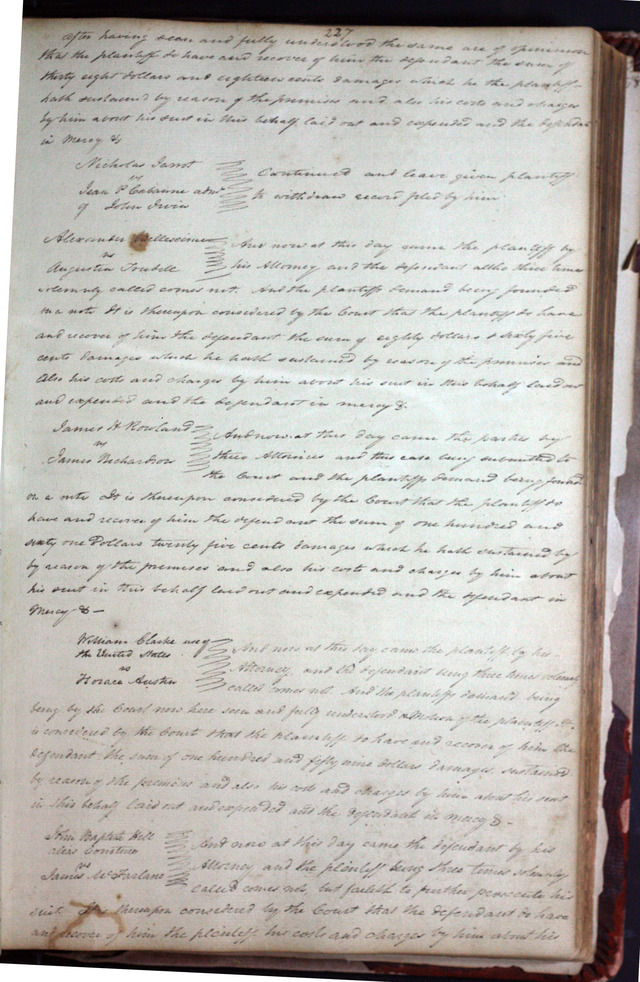 227
after having seen and fully understood the same are of opinion
that the plaintiff do have and recover of him the defendant the sum of
thirty eight dollars and eighteen cents damages which he the plaintiff
hath sustained by reason of the premises and also his costs and charges
by him about his suit in this behalf laid out and expended and the defendant
in mercy &c
Nicholas Jarrot
vs
Jean P Cabanne admr
of John Irwin
Continued and leave given plaintiff
to withdraw record filed by him
Alexander Bellessime
vs
Augustin
And now at this day came the plaintiff by
his Attorney and the defendant altho three times
solemnly called comes not. And the plaintiffs demand being founded
on a note It is thereupon considered by the Court that the plaintiff do have
and recover of him the defendant the sum of eighty dollars & sixty five
cents damages which he hath sustained by reason of the premises and
also his costs and charges by him about his suit in this behalf laid out
and expended and the defendant in mercy &.
James H Rowland
vs
James Richardson
And now at this day came the parties by
their Attornies and this case being submitted to
the Court and the plaintiffs demand being found
on a note It is thereupon considered by the Court that the plaintiff do
have and recover of him the defendant the sum of one hundred and
sixty one Dollars twenty five cents damages which he hath sustained by
by reason of the premises and also his costs and charges by him about
his suit in this behalf laid out and expended and the defendant in
Mercy & —
William Clarke use of
the United States
vs
Horace Austin
And now at this day came the plaintiff by his
Attorney and the defendant being three times solemnly
called comes not. And the plaintiffs demand being
being by the Court now here seen and fully understood of the plaintiff It
is considered by the Court that the plaintiff do have and recover of him the
defendant the sum of one hundred and fifty nine dollars damages sustained
by reason of the premises and also his costs and charges by him about his suit
in this behalf laid out and expended and the defendant in mercy & -
John Baptiste Hill
alias
vs
James McFarlane
And now at this day came the defendant by his
Attorney and the plaintiff being three times solemnly
called comes not but faileth to further prosecute his
suit. It is thereupon considered by the Court that the defendant do have
and recover of him the plaintiff his costs and charges by him about his